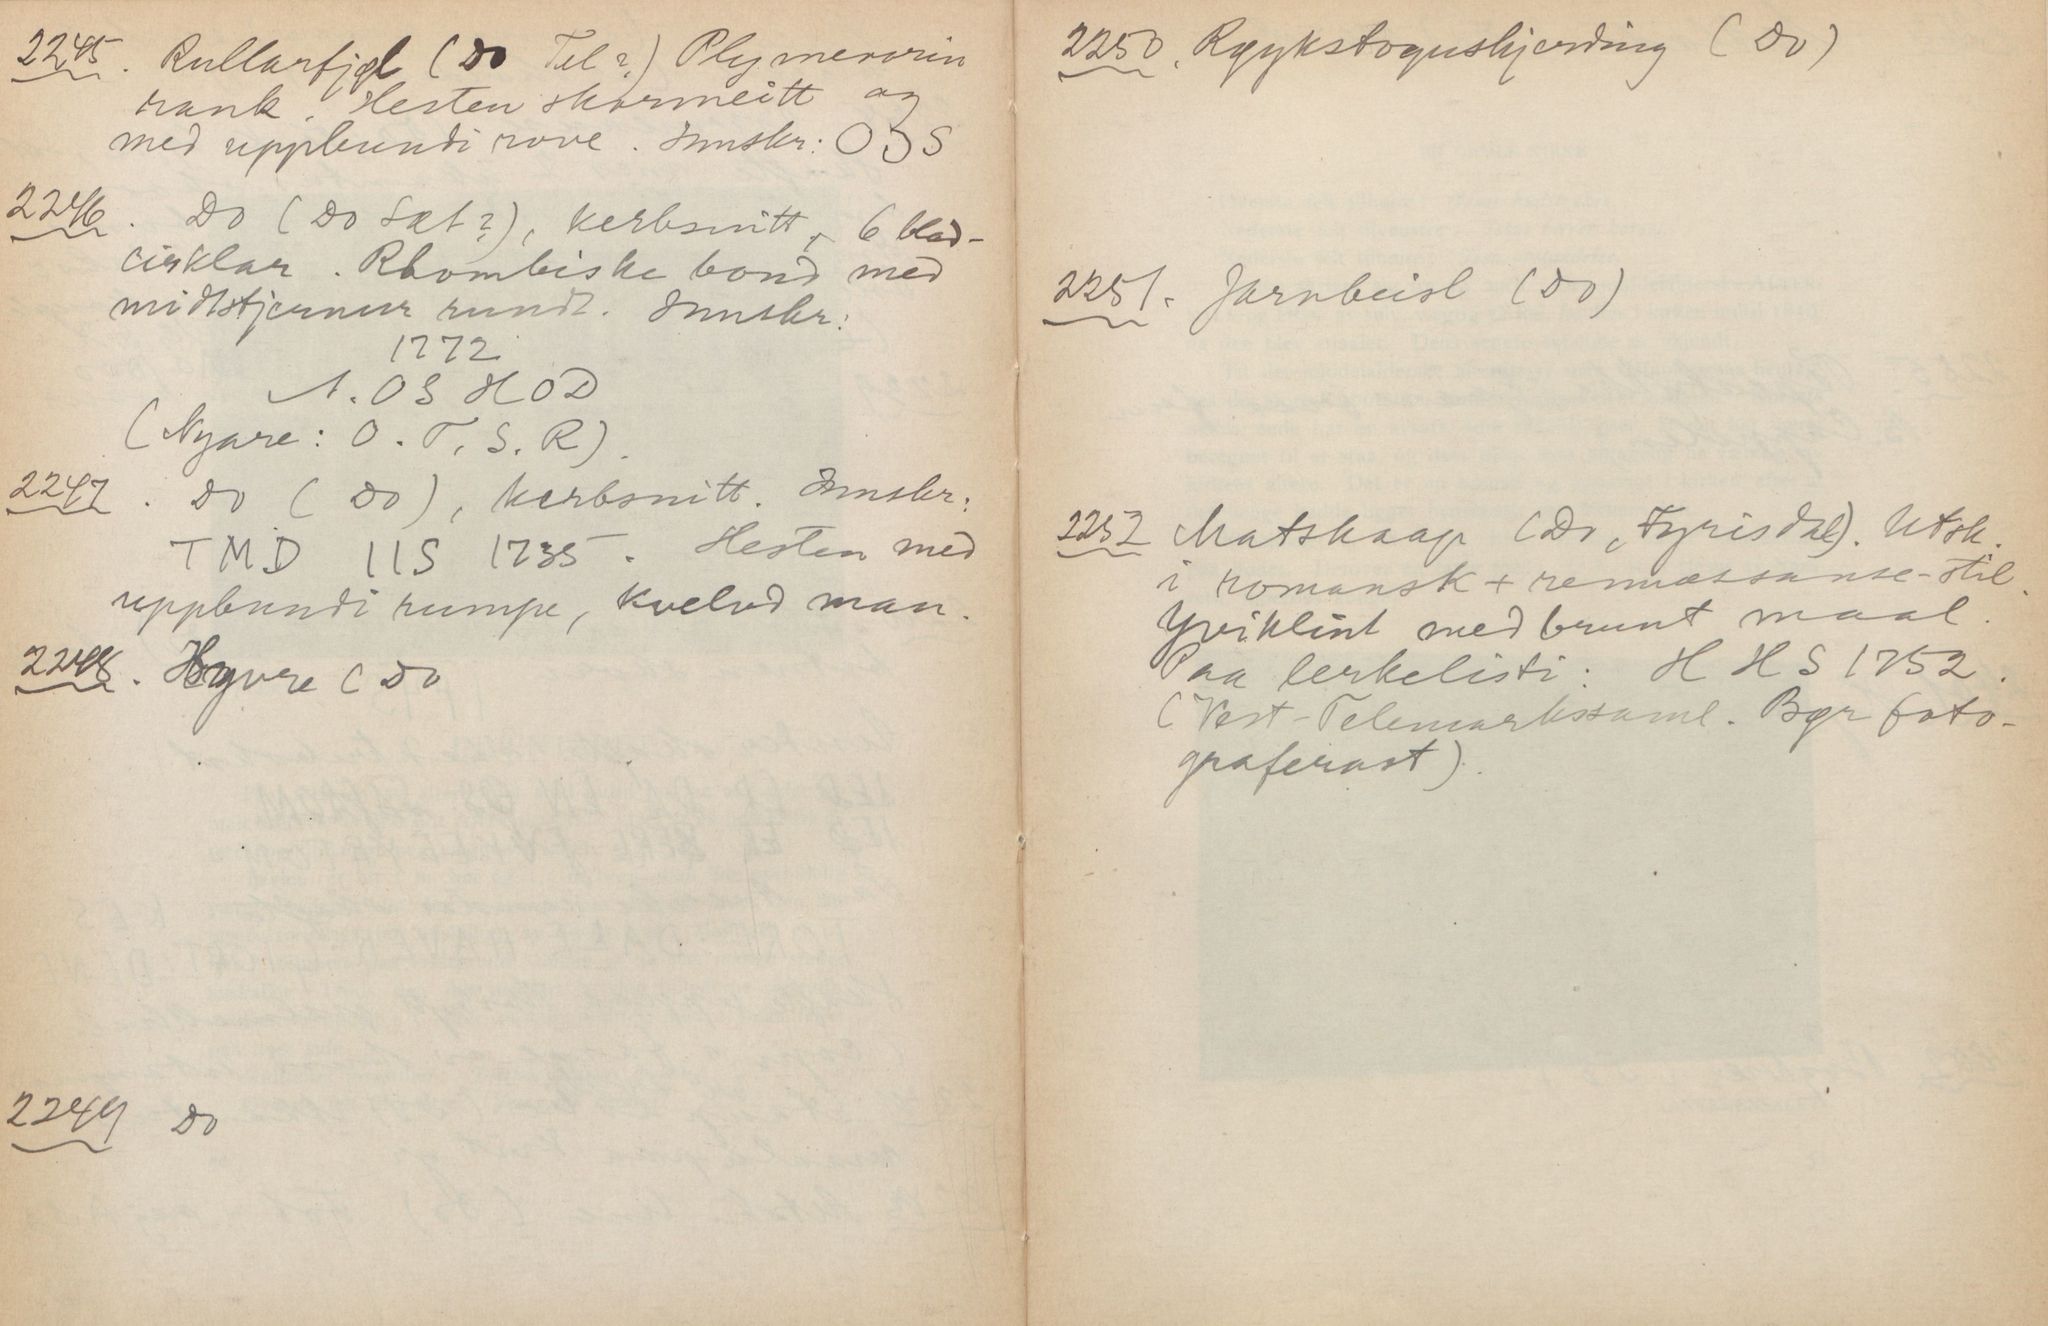 2245. Rullarfjøl (Do Tel?) Plymerorin
rank. Hesten skormeitt og
med uppbundi rove. Innskr: O Z S
2246. Do (Do Sæt?), kerbsnitt, 6 blad-
cirklar. Rhombiske bond med
midtstjernur rundt. Innskr:
1772
N. OS HOD
(Nyare: O. T. S. R).
2247. Do (Do), kerbsnitt. Innskr:
TMD IIS 1735. Hesten med
uppbundi rumpe, kvelvd man.
2248. Høvre (Do
2249 Do
2250. Røykstoguskjerding (Do)
2251. Jarnbeisl (Do)
2252 Matskaap (Do, Fyrisdal). Utsk.
i romansk + rennæssanse-stil.
Yviklint med brunt maal.
Paa lerkelisti: H H S 1752.
(Vest-Telemarkssaml. Bør foto-
graferast).